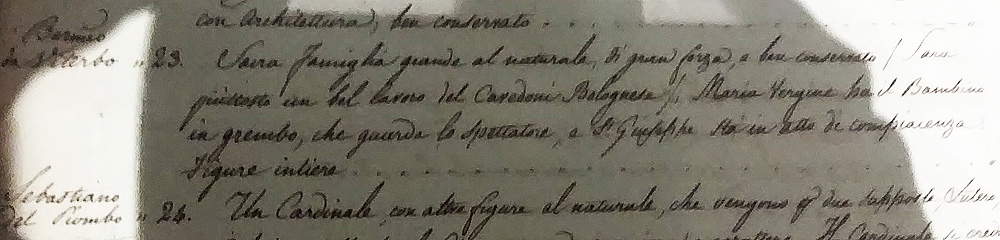 con Architettura, ben conservato
da Viterbo n 23. Sacra Famiglia grande al naturale, di gran forza, e ben conservato / Sara
piuttosto un bel lavoro del Cavedoni Bolognese /, Maria Vergine ha il Bambino
in grembo, che guarda lo spettatore, e S. Giuseppe sta in atto di compiacenza
Figure intiere
Sebastiano
del Piombo n 24. Un Cardinale con altre figure al naturale, che vengono
due supposte
Il Cardinale